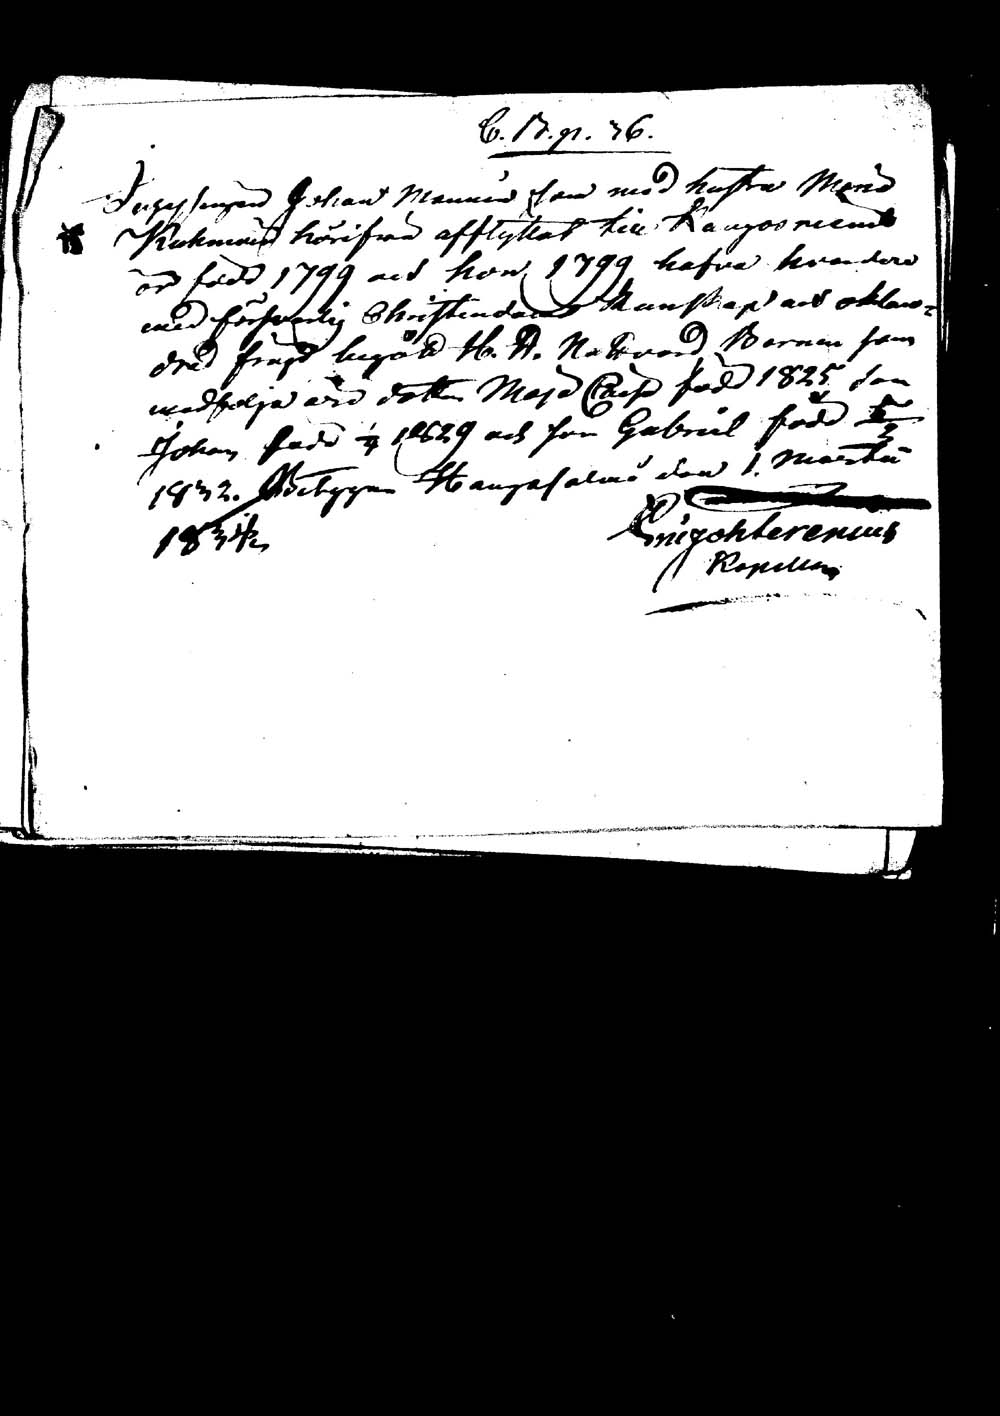 C. B. p. 36.
Inhysingen Johan Manninen som med hustru Maria
Kukmoin härifrån afflyttat till Kangasniemi
är född 1799 och hon 1799 hafva hvardera
med försvarlig Christendoms Kunskap och oklan=
drad frägd begått H. H. Nattvard, Barnen som
medfölja äro dottren Maja Caisa född 1825 son
Johan född 1/4 1829 och son Gabriel född
1832. Hankasalmi den 1. Martii
183
Kapellan